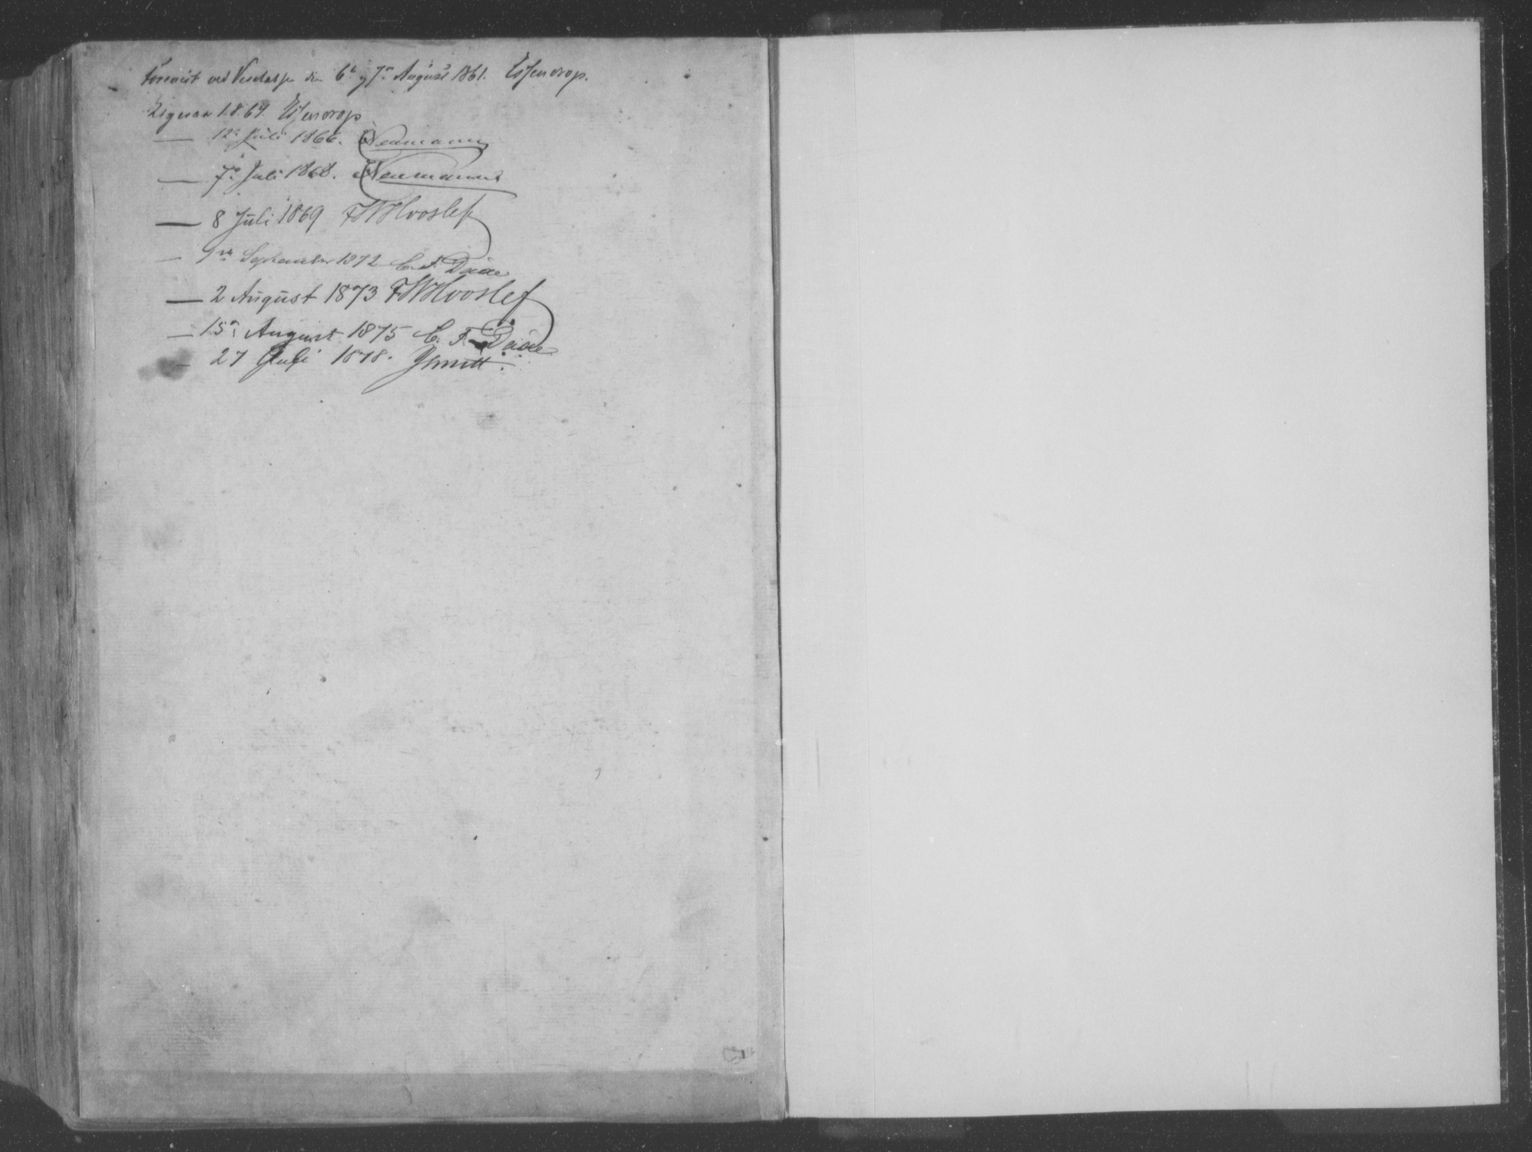 Foreviist ved Visitats den 6te og 7de August 1861. Essendrop.
Ligesaa 1864 Essendrop
— 12te Juli 1866. Neumann
— 7de Juli 1868. Neumann
— 8 Juli 1869 FWHvoslef
— September 1872 C. F. Daae
— 2 August 1873 FWHvoslef
— 15de August 1875 C. F. Daae
— 27 Juli 1878.